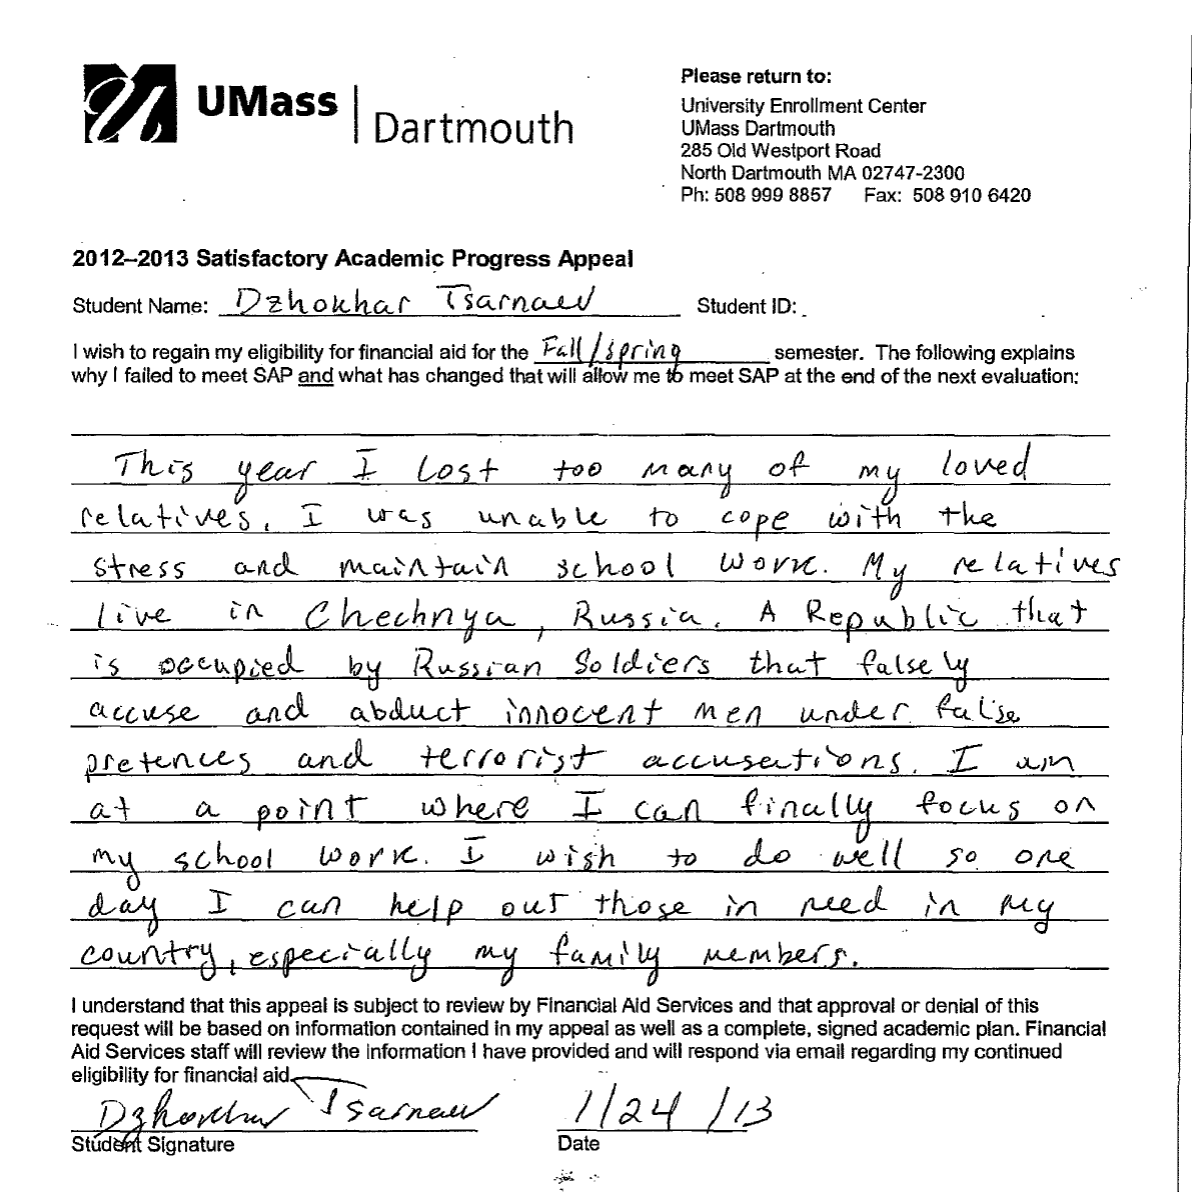 UMass | Dartmouth
Please return to:
University Enrollment Center
UMass Dartmouth
285 Old Westport Road
North Dartmouth MA 02747-2300
Ph: 508 999 8857 Fax: 508 910 6420
2012–2013 Satisfactory Academic Progress Appeal
Student Name: Dzhokhar Tsarnaev Student ID:
I wish to regain my eligibility for financial aid for the Fall/spring semester. The following explains
why I failed to meet SAP and what has changed that will allow me to meet SAP at the end of the next evaluation:
This year I lost too many of my loved
relatives. I was unable to cope with the
stress and maintain school work. My relatives
live in Chechnya, Russia. A Republic that
is occupied by Russian Soldiers that falsely
accuse and abduct innocent men under false
pretences and terrorist accusations. I am
at a point where I can finally focus on
my school work. I wish to do well so one
day I can help out those in need in my
country, especially my family members.
I understand that this appeal is subject to review by Financial Aid Services and that approval or denial of this
request will be based on information contained in my appeal as well as a complete, signed academic plan. Financial
Aid Services staff will review the information I have provided and will respond via email regarding my continued
eligibility for financial aid.
Dzhokhar Tsarnaev 1/24/13
Student Signature Date